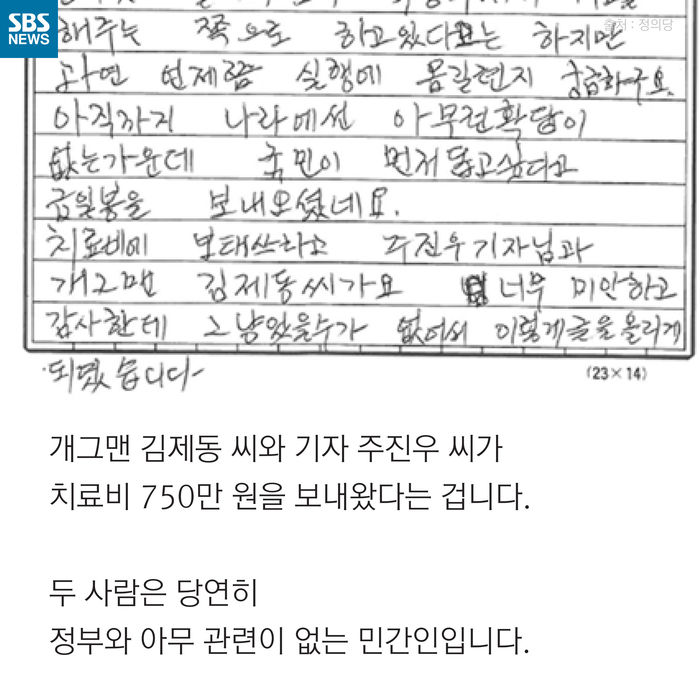 SBS
NEWS
출처 : 정의당
해주는 쪽으로 하고있다고는 하지만
과연 언제쯤 실행에 옮길련지 궁금하구요.
아직까지 나라에선 아무런확답이
없는가운데 국민이 먼저돕고싶다고
금일봉을 보내오셨네요.
치료비에 보태쓰라고 주진우기자님과
개그맨 김제동씨가요 너무 미안하고
감사한데 그냥있을수가 없어서 이렇게글을올리게
되었습니다-
(23×14)
개그맨 김제동 씨와 기자 주진우 씨가
치료비 750만 원을 보내왔다는 겁니다.
두 사람은 당연히
정부와 아무 관련이 없는 민간인입니다.